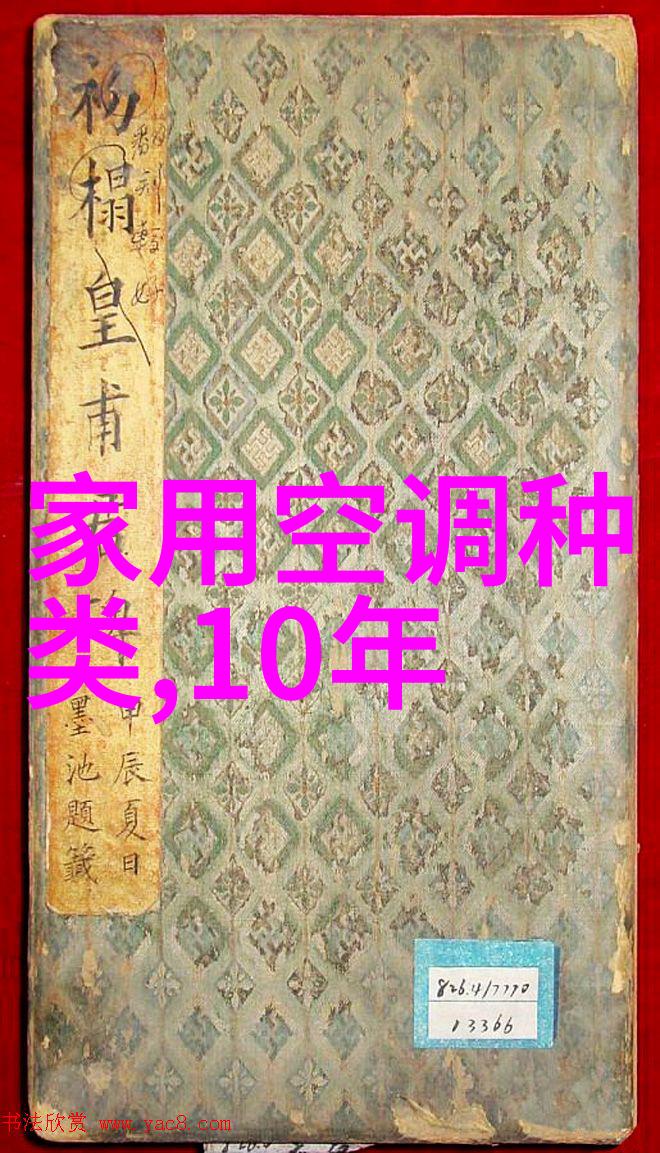 初榻皇甫
甲辰夏日
墨池題籤
家用空调种
类,10年
826.4/7770
13366
书法欣赏 www.yac8.com